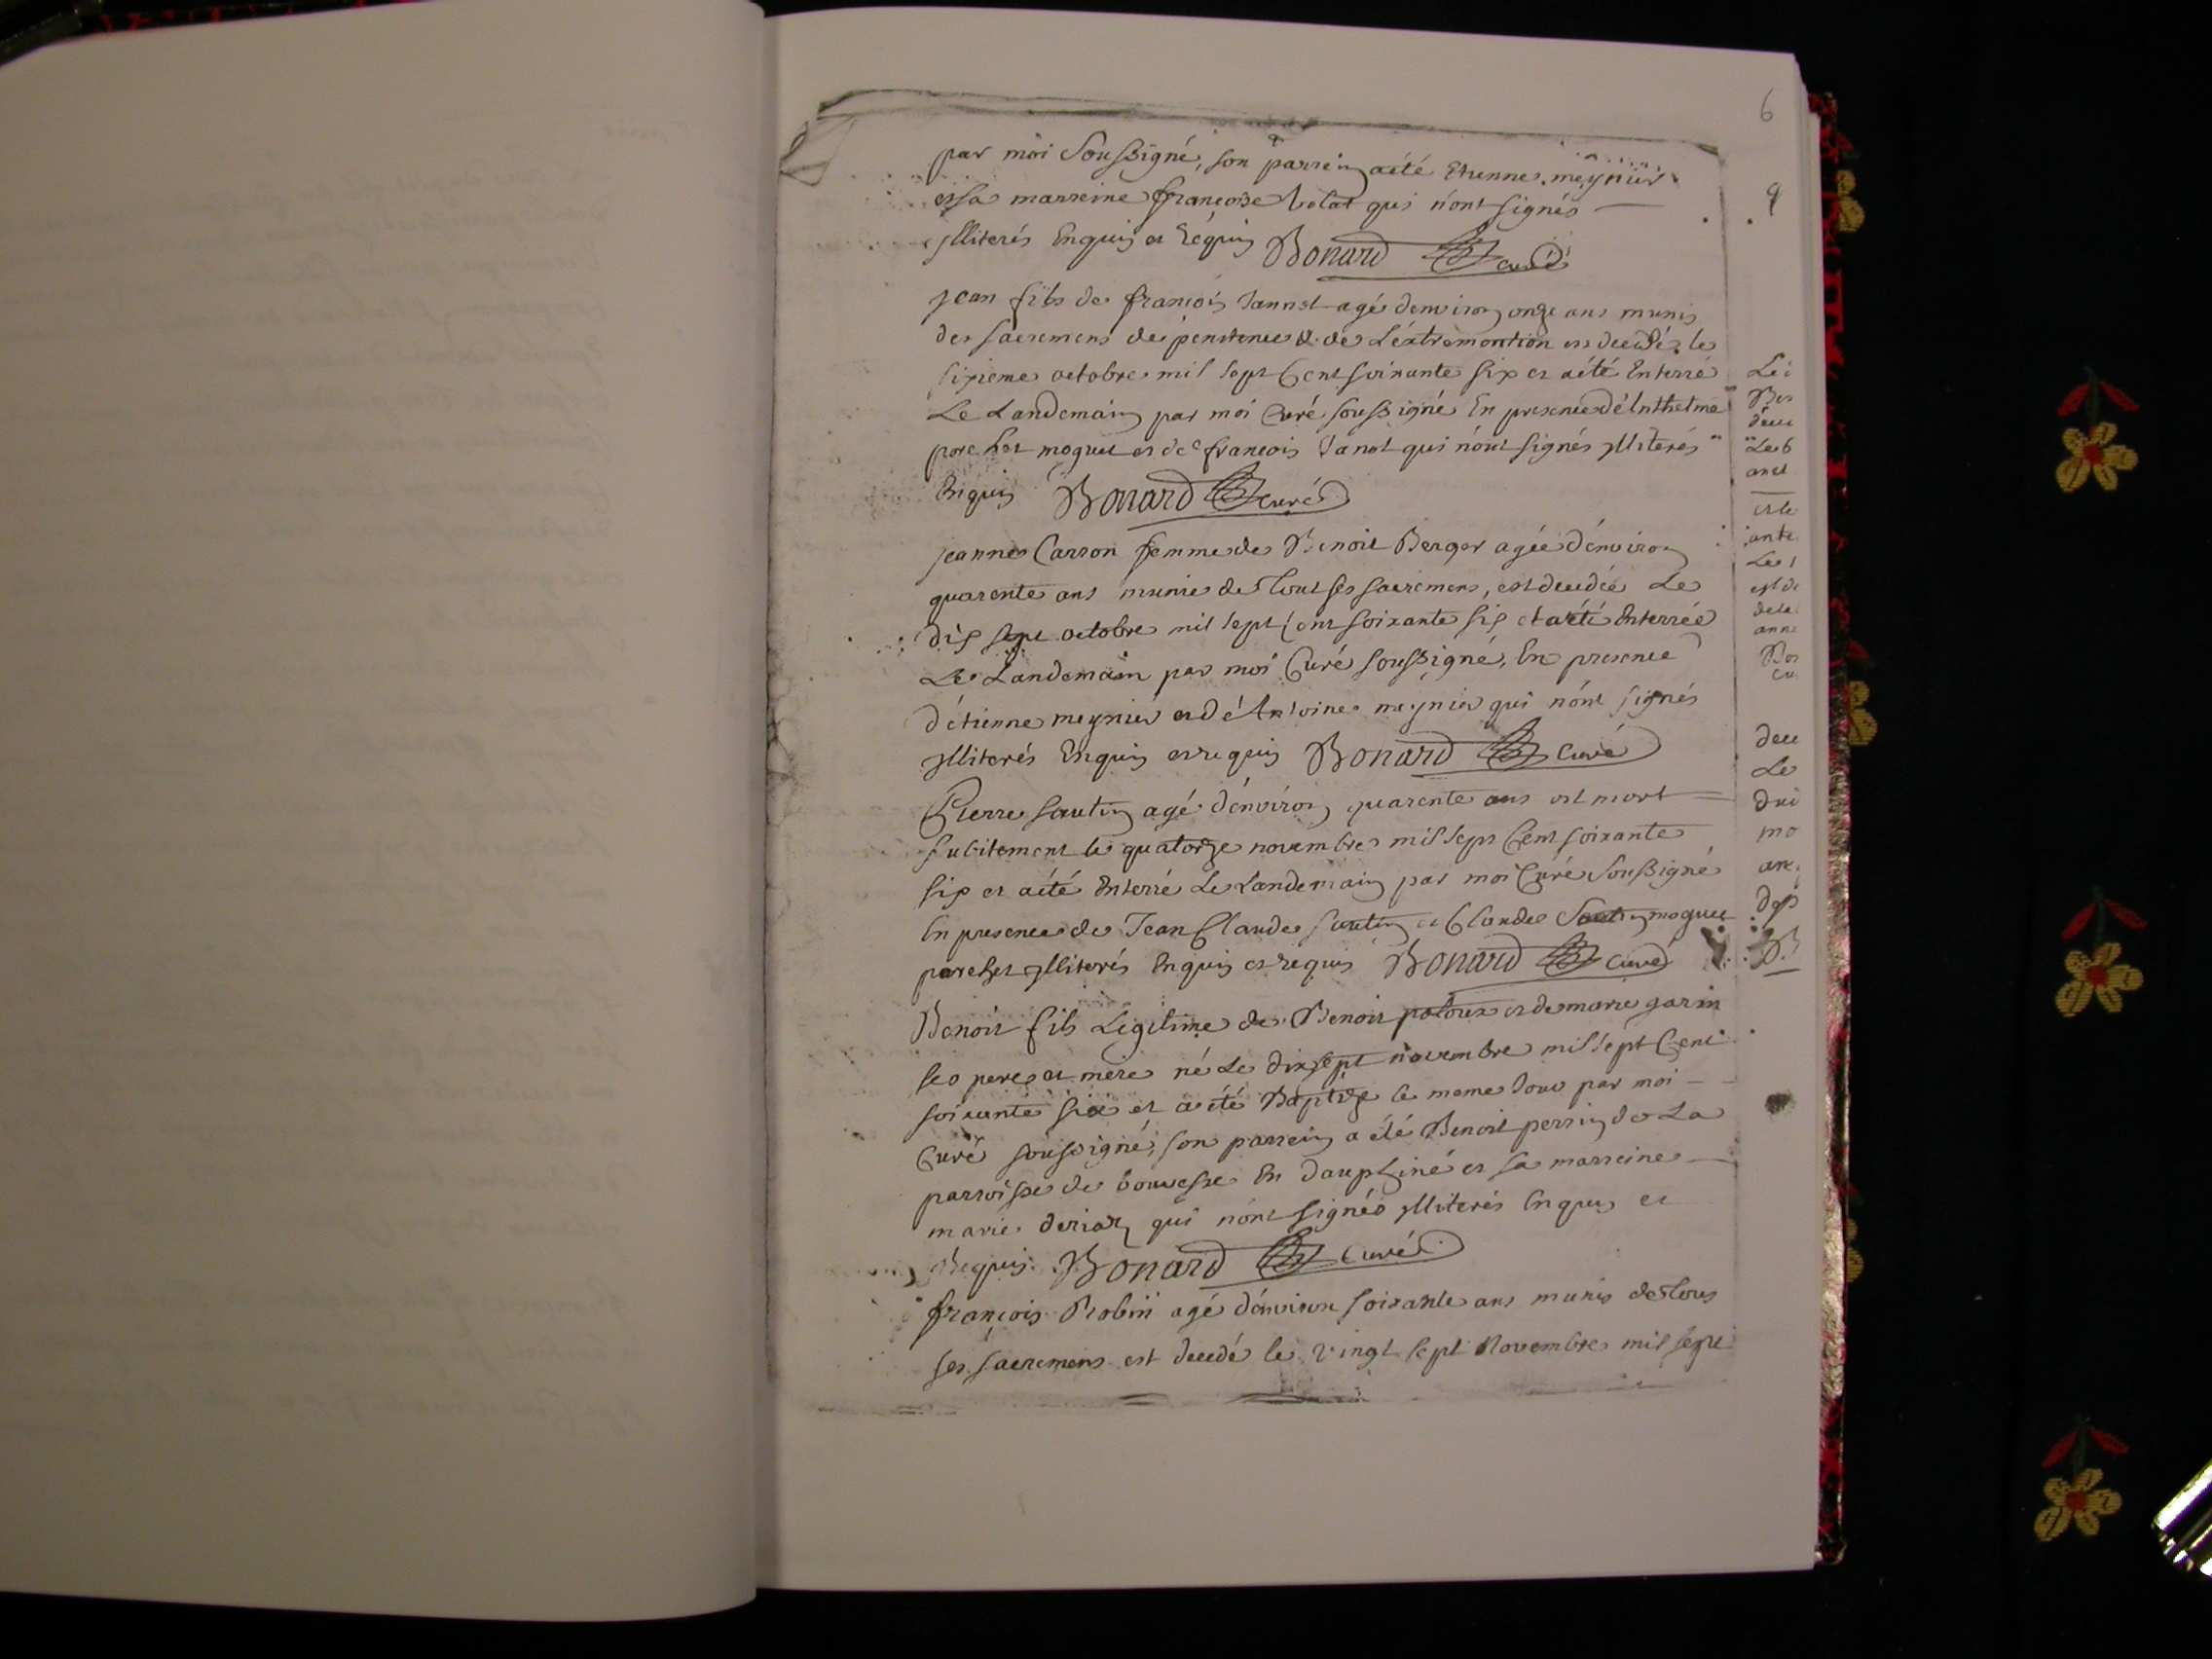 6
par moi Soussigné, son parrein aété Etienne meynier
et sa marreine françoise qui n'ont signés
illiterés Enquis et Requis Bonard curé
9
jean fils de françois Jannot agé denviron onze ans munis
des sacremens de penitence & de L'éxtremontion est decédé le
sixieme octobre mil sept Cent soixante six et aété Enterré
Le Landemain par moi Curé soussigné En presence d'Enthelme
porchet moguet et de françois Janot qui n'ont signés illiterés
Enquis Bonard curé
jeanne Carron femme de Benoit Berger agée d'environ
quarente ans munie de tout ses sacremens, est decedée Le
dix sept octobre mil sept Cent soixante six et aété Enterrée
Le Landemain par moi Curé soussigné, En presence
d'étienne meynier et d'Antoine meynier qui n'ont signés
illiterés Enquis et requis Bonard Curé
Pierre sautin agé d'environ quarente ans est mort
subitement le quatorze novembre mil sept Cent soixante
six et aété Enterré Le Landemain par moi Curé Soussigné
En presence de Jean Claude sautin et Claude moguet
porchet illiterés Enquis et requis Bonard Curé
Benoit fils Legitime de Benoit poloux et de marie garin
ses pere et mere né Le dix sept novembre mil sept Cent
soixante six et aété Baptizé le meme Jour par moi
Curé soussigné, son parrein a été Benoit perrin de La
parroisse de bouvesse En dauphiné et sa marreine
marie deriaz qui n'ont signés illiterés Enquis et
Requis Bonard Curé
françois Robin agé d'environ soixante ans munis de tous
ses sacremens est decedé le vingt sept Novembre mil sept